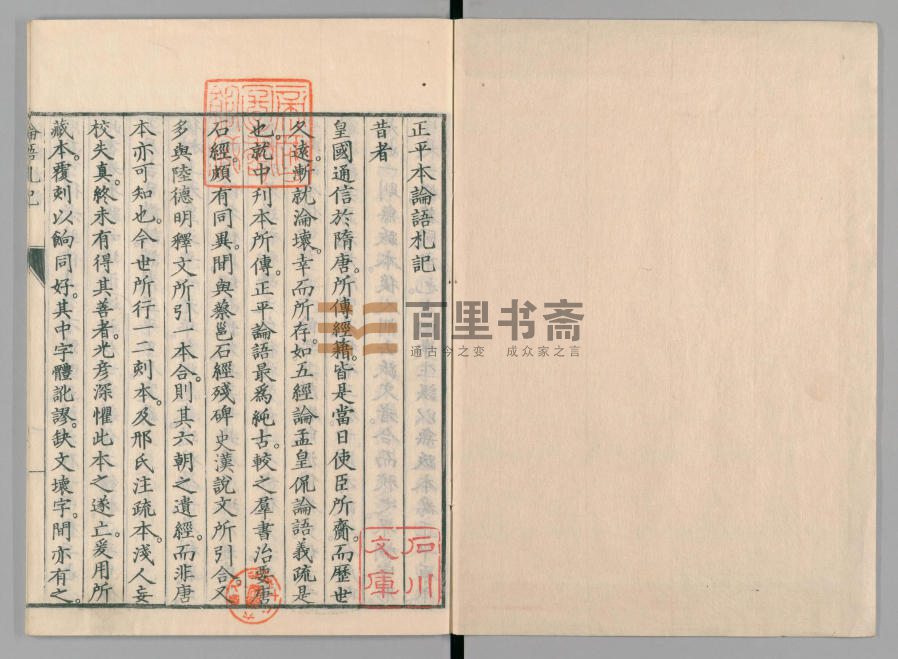 正平本論語札記
昔者
皇國通信於隋唐。所傳經籍。皆是當日使臣所齎。而歷世
久遠。漸就淪壞。幸而所存。如五經論孟皇侃論語義疏是
也。就中刊本所傳。正平論語最爲純古。較之羣書治要唐
石經。頗有同異。間與蔡邕石經殘碑史漢說文所引合。又
多與陸德明釋文所引一本合。則其六朝之遺經。而非唐
本亦可知也。今世所行一二刻本。及邢氏注疏本。淺人妄
校失真。終未有得其善者。光彦深懼此本之遂亡。爰用所
藏本。覆刻以餉同好。其中字體訛謬。缺文壞字。間亦有之。
論語札記
石川
文庫
百里书斋
通古今之变 成众家之言